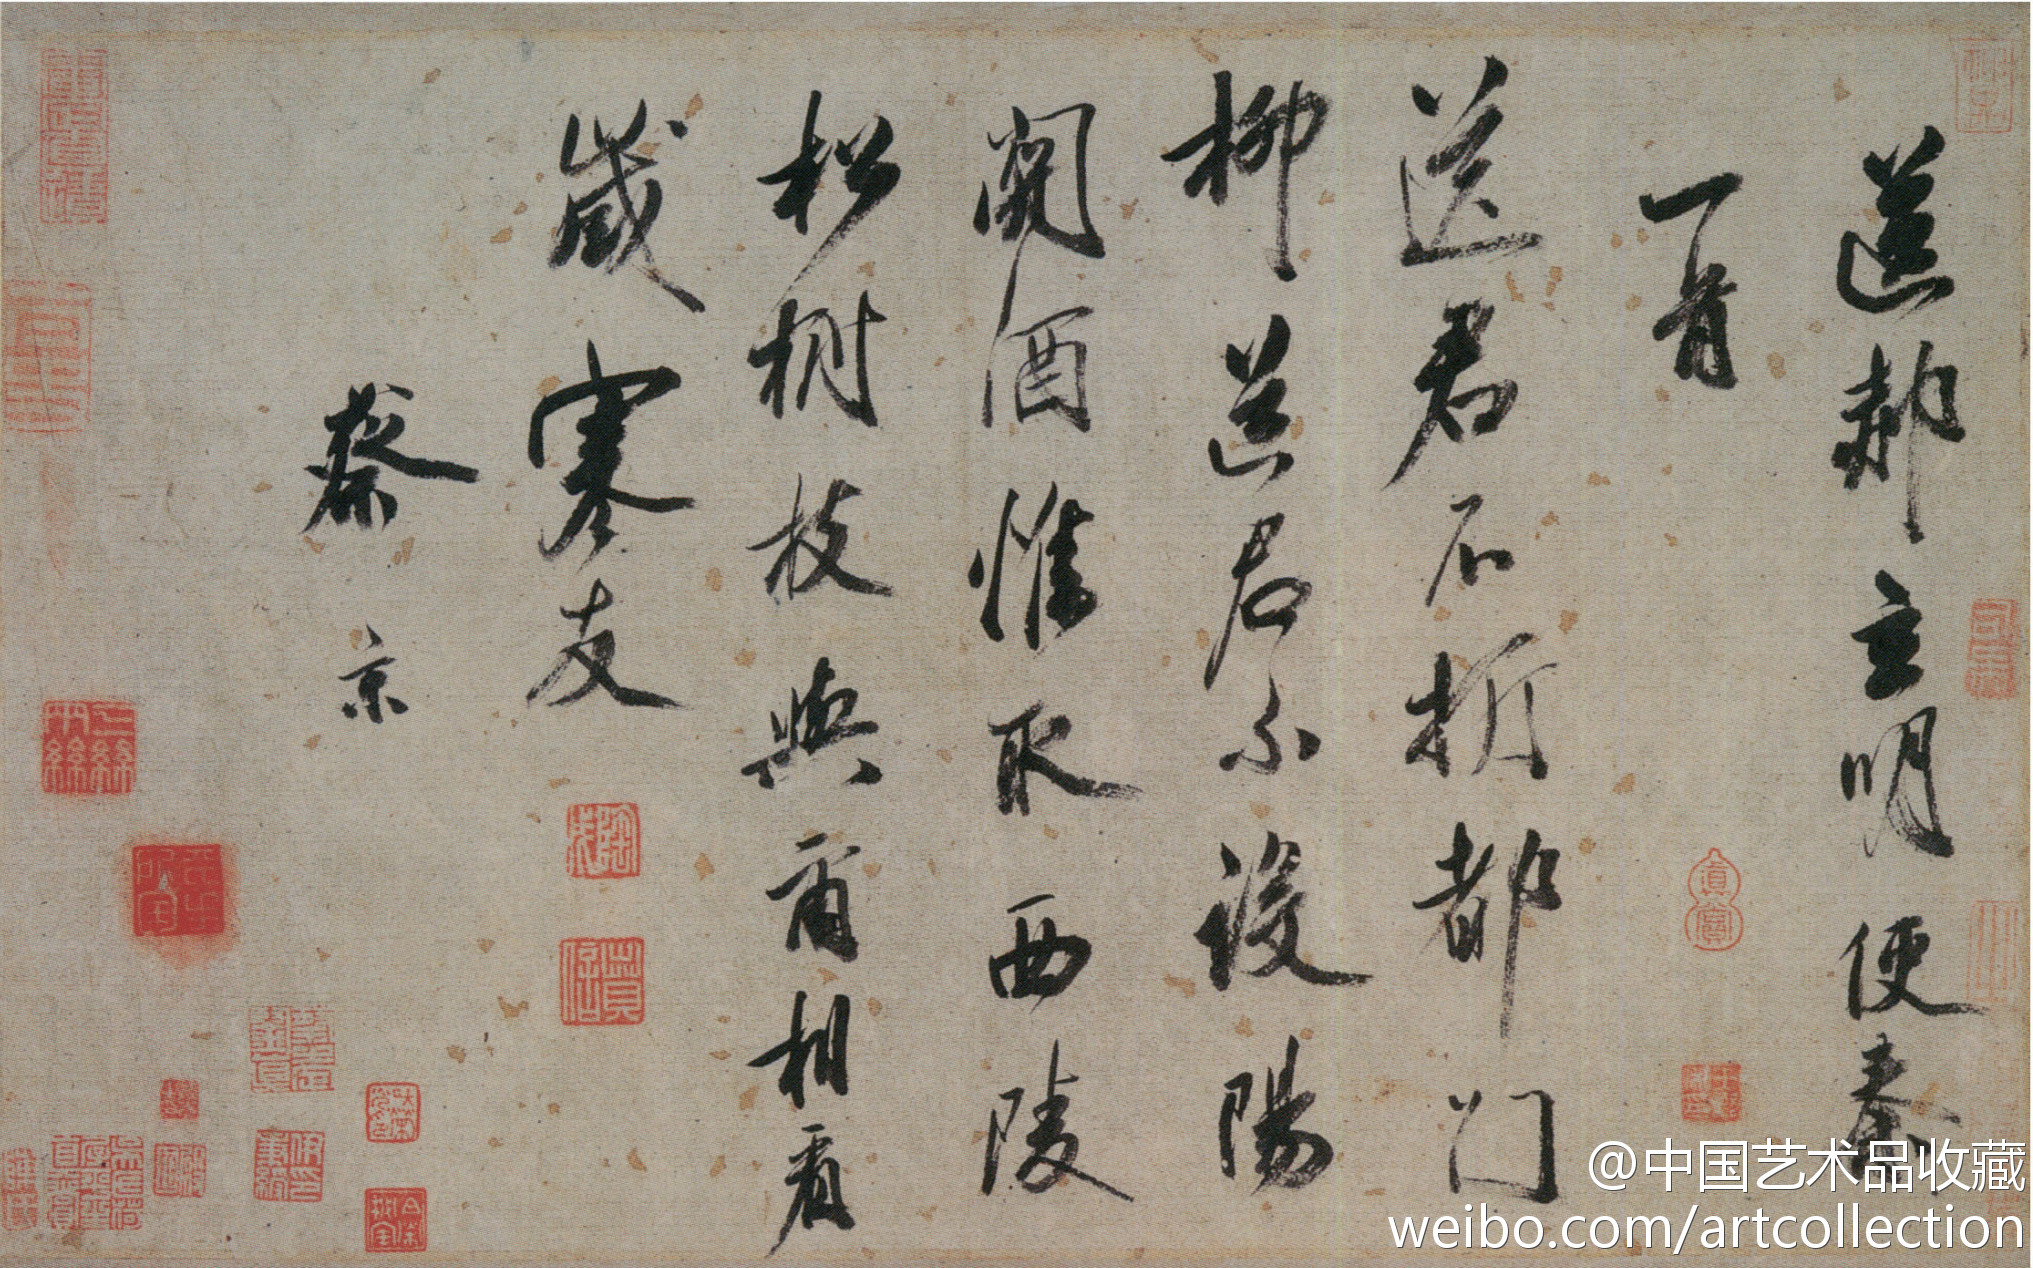 送郝玄明使秦
一首
送君不折都門
柳送君不設陽
關酒惟取西陵
松樹枝與爾相看
歲寒友
蔡京
真賞
@中国艺术品收藏
weibo.com/artcollection